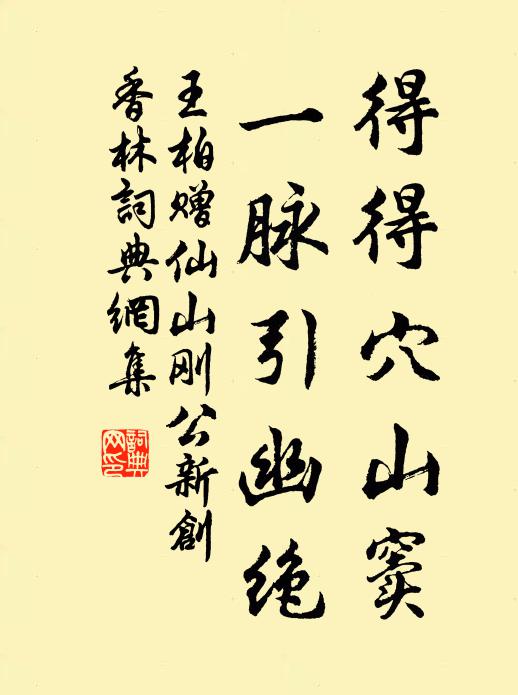 得得穴山窦
一脉引幽绝
王柏赠仙山刚公新創
香林詞典網集
詞典
网印